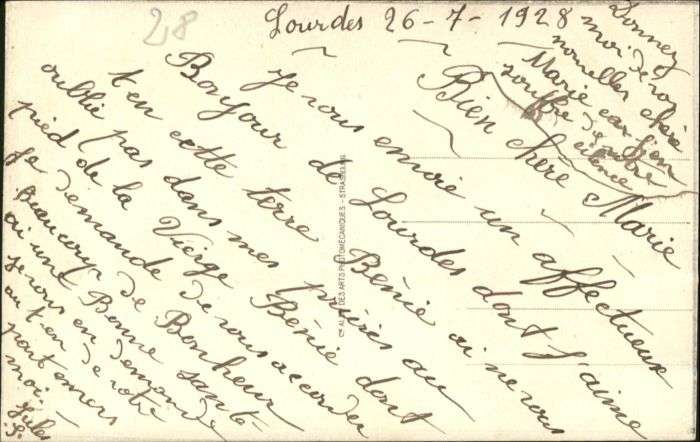 28
Lourdes 26-7-1928
Bien chère Marie
Je vous envoie un affectueux
Bonjour de Lourdes dont j'aime
t'en cette terre Bénie ai ne vous
oublie pas dans mes prières au
pied de la Vierge Bénie dont
Je demande de vous accorder
Beaucoup de Bonheur
ai une Bonne santé
Je vous en demande
au t'en de votre
part envers
moi. Jules
Donnez
moi de vos
nouvelles chère
Marie car j'en
souffre de votre
silence
DES ARTS PHOTOMÉCANIQUES - STRASBOURG